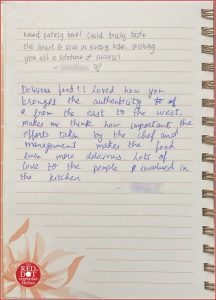 Loved eating here! Could truly taste
the heart & soul in every bite. Wishing
you all a lifetime of success!
Delicious food!! Loved how you
brought the authenticity to of
from the east to the west.
makes me think how important the
efforts taken by the chef and
management makes the food
even more delicious. Lots of
love to the people involved in
the kitchen
RED
DOT
vegetarian
kitchen